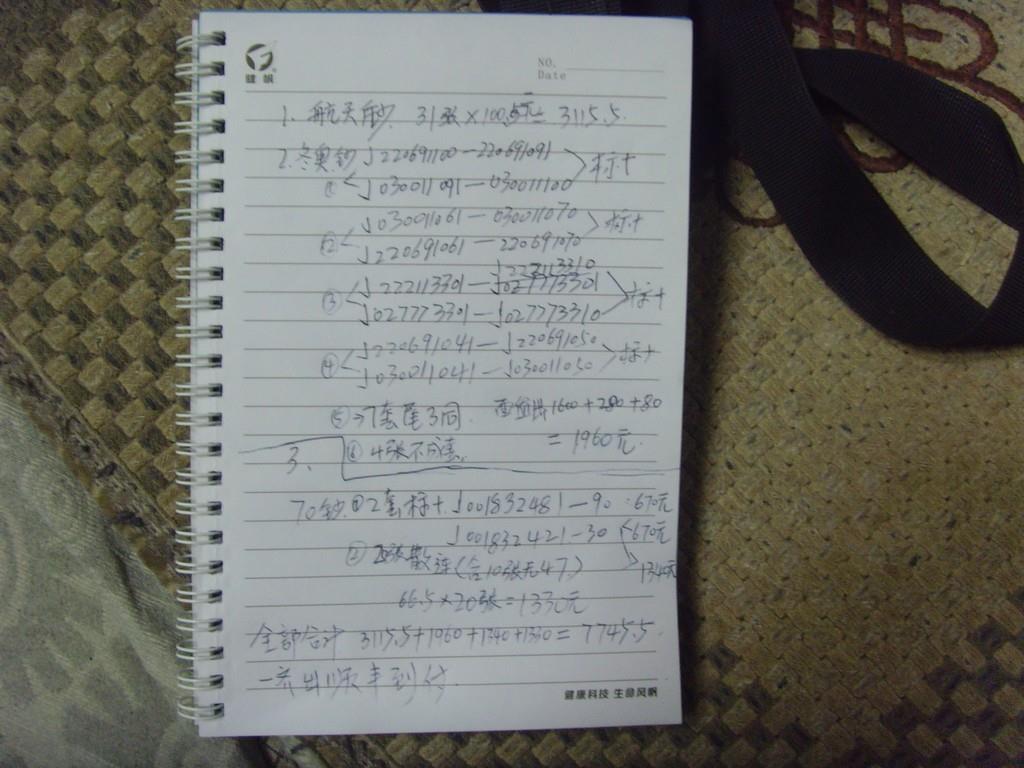 健帆
NO.
Date
1、航天钞 31张×100.5元= 3115.5.
2.冬奥钞 J220691100—220691091 >标十
① < J030011091—030011100
② < J030011061—030011070 >标十
J220691061—220691070
J222113310
③ < J222113301—J027773301 >标十
J027773301—J027773310
④ < J220691041—J220691050 >标十
J030011041—J030011050
⑤ 7套尾3同. 1600+280+80
=1960元.
⑥ 4张不成套.
3、
70钞①2套标十 J001832481—90 :670元
J001832421—30 670元
② 散连(含10张无47) 1340元
66.5×20张=1330元
全部合计 3115.5+1960+1340+1330= 7745.5.
一齐出顺丰到付.
健康科技 生命风帆